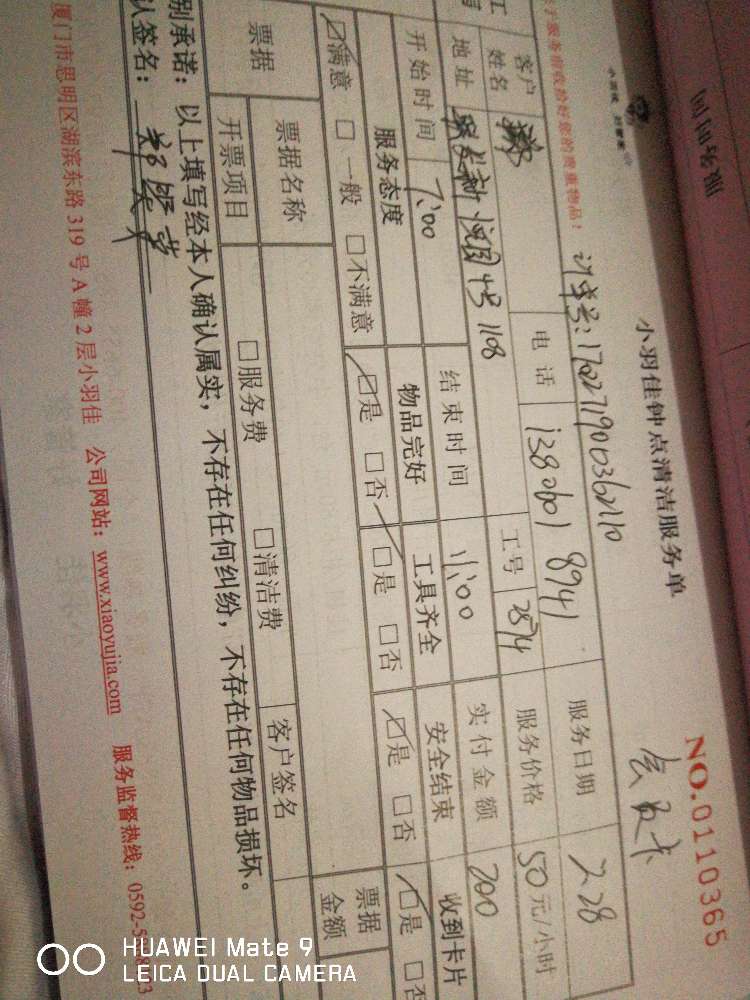 服务时间
小羽佳钟点清洁服务单
NO.0110365
会员卡
于服务前收拾好您的贵重物品!
计单号:
客户姓名
电话
1380601 8941
服务日期
2.28
地址
1108
工号
2874
服务价格
50元/小时
开始时间
7:00
结束时间
11:00
实付金额
200
服务态度
物品完好
工具齐全
安全结束
收到卡片
☑满意 □一般 □不满意
☑是 □否
☑是 □否
☑是 □否
☑是 □否
票据
票据名称
客户签名
票据金额
开票项目
□服务费 □清洁费
别承诺:以上填写经本人确认属实,不存在任何纠纷,不存在任何物品损坏。
认签名:
厦门市思明区湖滨东路319号A幢2层小羽佳 公司网站:www.xiaoyujia.com 服务监督热线:0592-5
HUAWEI Mate 9
LEICA DUAL CAMERA